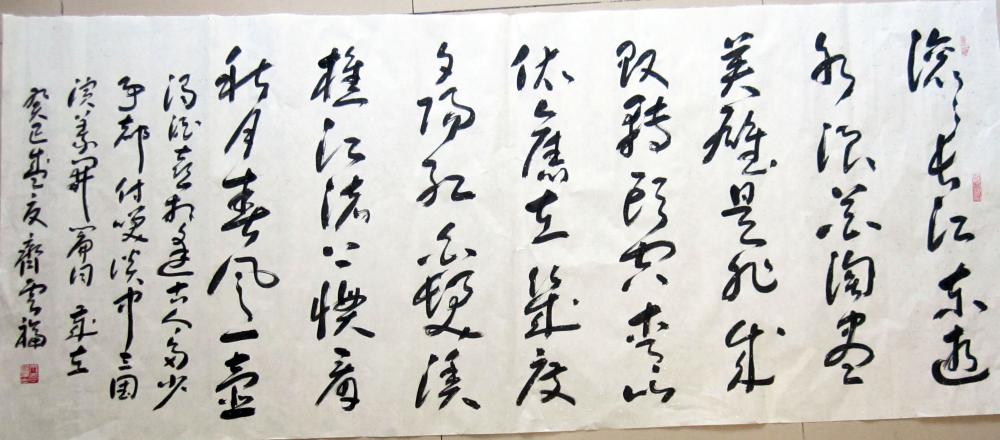 滚滚长江东逝
水浪花淘尽
英雄是非成
败轉头空青山
依舊在幾度
夕阳红白髮渔
樵江渚上惯看
秋月春风一壶
浊酒喜相逢古今多少
事都付笑谈中三国
演义開篇词 岁在
癸巳盛夏齊雲福